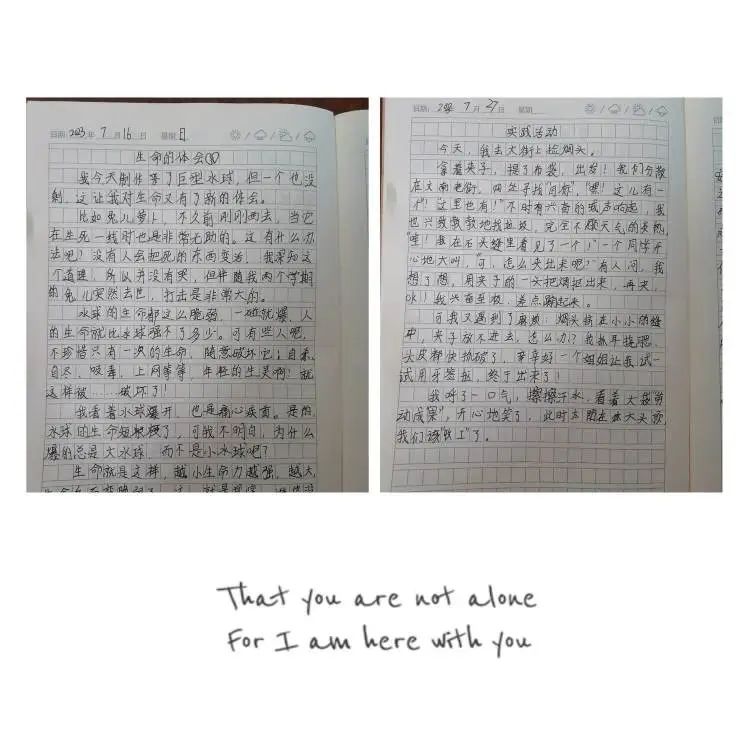 日期: 2023年 7月 16日 星期 日
生命的体会(1)
我今天制作等了巨型水球,但一个也没
剩,这让我对生命又有了新的体会。
比如兔儿萝卜,不久前刚刚去,当它
在生死一线时也是非常无助的。这有什么办
法呢?没有人会把死的东西变活,我深知这
个道理,所以并没有哭,但伴随我两个学期
的兔儿突然去世,打击是非常大的。
水球的生命都这么脆弱,一碰就爆,人
的生命就比水球强不了多少。可有些人呢,
不珍惜只有一次的生命,随意破坏它:自杀,
自尽,吸毒,上网等等,年轻的生灵啊!就
这样被……破坏了!
我看着水球爆开,也是痛心疾首。是的,
水球的生命短暂了,可我不明白,为什么
爆的总是大水球,而不是小水球呢?
生命就是这样,越小生命力越强,越大,
日期: 7月 27日 星期
实践活动
今天,我去大街上捡烟头。
拿着夹子,提了布袋,出发!我们分散
在文南老街,四处寻找“目标”,“嘿!这儿有一
个!这里也有!”不时有兴奋的喊声响起,我
也兴致勃勃地找垃圾,完全不顾天气的炎热,
“哇!我在石头缝里看见了一个!”一个同学开
心地大叫,“可,怎么夹出来呢?”有人问,我
想了想,用夹子的一头把烟拒出来,再夹,
ok!!我兴奋至极,差点蹦起来。
可我又遇到了麻烦:烟头掉在小小的缝
中,夹子放不进去,怎么办?我抓耳挠腮,
头皮都快抓破了,幸亏好一个姐姐让我试一
试用牙签抠,终于出来了!
我呼了一口气,擦擦汗水,看着大袋“劳
动成果”,开心地笑了,此时太阳在大头顶,
我们该“收工”了。
That you are not alone
For I am here with you